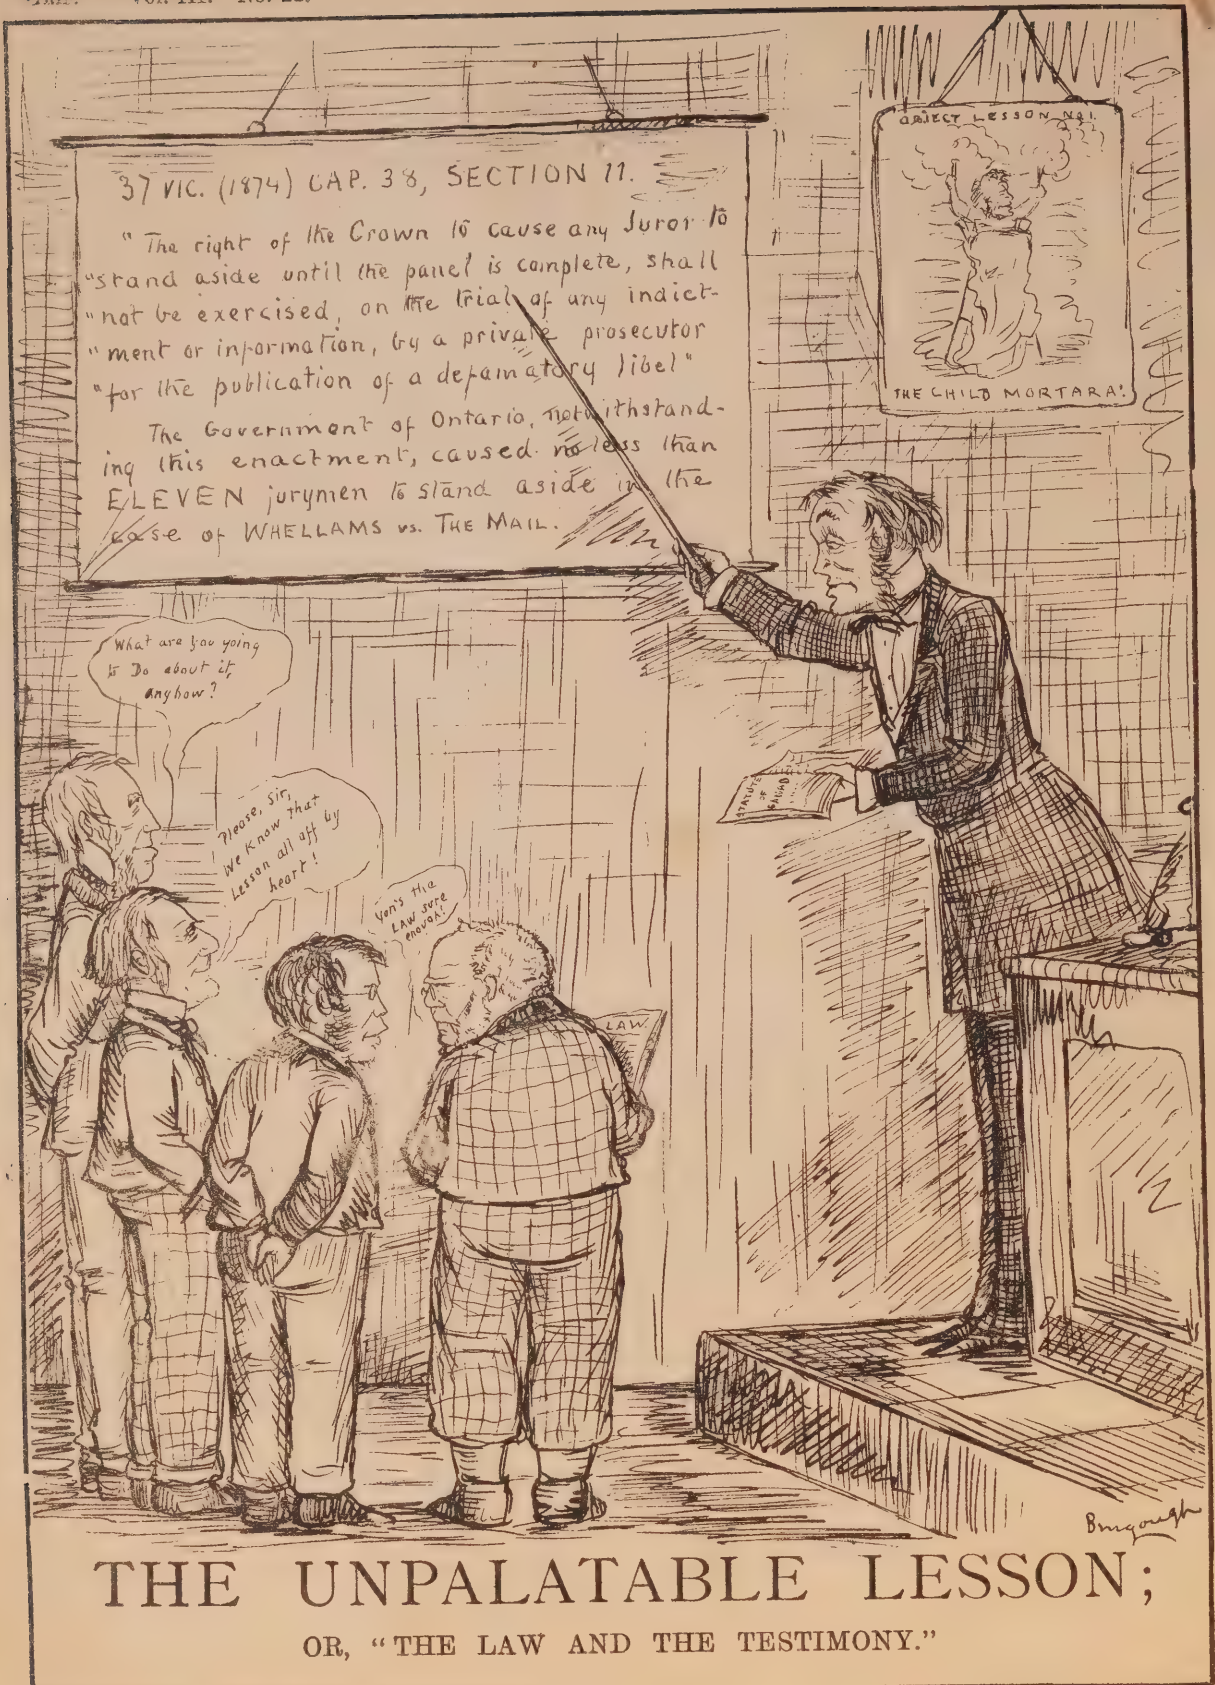 VOL. III. No. 22.
37 VIC. (1874) CAP. 38, SECTION 11.
"The right of the Crown to cause any Juror to
"stand aside until the panel is complete, shall
"not be exercised, on the trial of any indict-
"ment or information, by a private prosecutor
"for the publication of a defamatory libel"
The Government of Ontario, notwithstand-
ing this enactment, caused no less than
ELEVEN jurymen to stand aside in the
case of WHELLAMS vs. THE MAIL.
OBJECT LESSON No 1.
THE CHILD MORTARA!
What are you going
to Do about it,
anyhow?
Please, Sir,
We Know that
Lesson all off by
heart!
Yon's the
LAW sure
enough!
STATUTES
OF
CANADA
LAW
Bengough
THE UNPALATABLE LESSON;
OR, "THE LAW AND THE TESTIMONY."